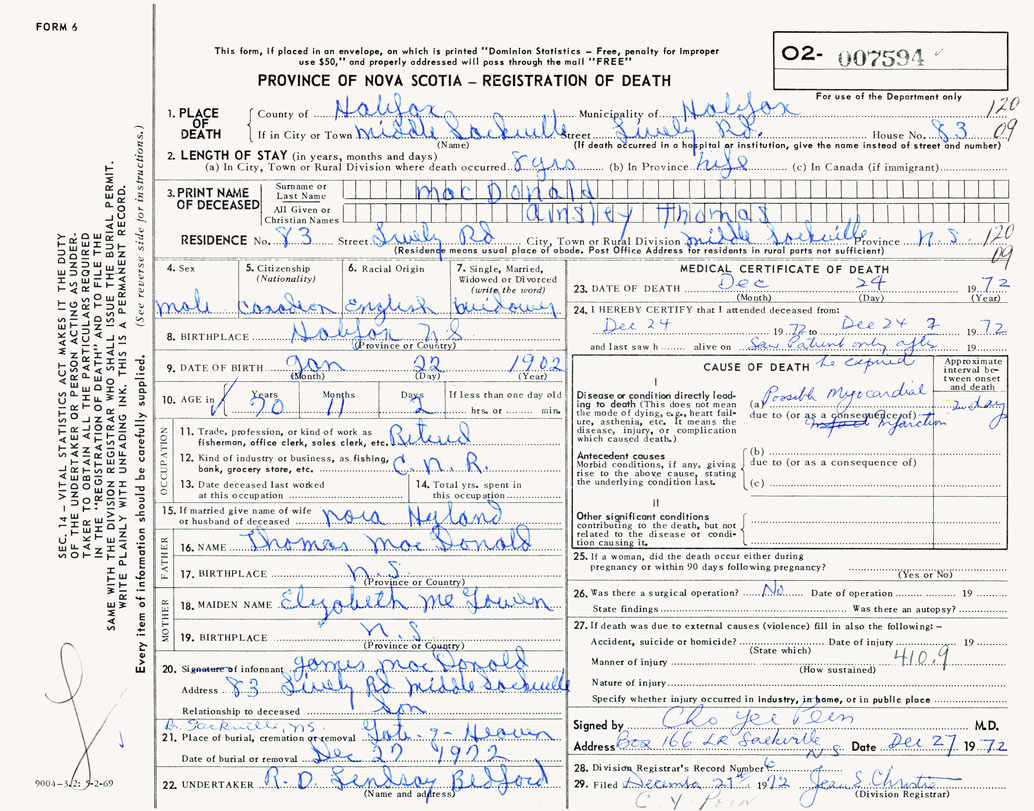 FORM 6
This form, if placed in an envelope, on which is printed "Dominion Statistics – Free, penalty for improper
use $50," and properly addressed will pass through the mail "FREE"
PROVINCE OF NOVA SCOTIA – REGISTRATION OF DEATH
O2- 007594
For use of the Department only
120
09
1. PLACE OF DEATH
County of Halifax Municipality of Halifax
If in City or Town Middle Sackville Street Lively Rd. House No. 83
(Name) (If death occurred in a hospital or institution, give the name instead of street and number)
2. LENGTH OF STAY (in years, months and days)
(a) In City, Town or Rural Division where death occurred 8 yrs (b) In Province life (c) In Canada (if immigrant)
3. PRINT NAME OF DECEASED
Surname or Last Name Mac Donald
All Given or Christian Names Ainsley Thomas
RESIDENCE No. 83 Street Lively Rd City, Town or Rural Division Middle Sackville Province N.S.
(Residence means usual place of abode. Post Office Address for residents in rural parts not sufficient)
120
09
4. Sex 5. Citizenship (Nationality) 6. Racial Origin 7. Single, Married, Widowed or Divorced (write the word)
male Canadian English widower
8. BIRTHPLACE Halifax N.S
(Province or Country)
9. DATE OF BIRTH Jan 22 1902
(Month) (Day) (Year)
10. AGE in Years Months Days If less than one day old
70 11 2 hrs. or min.
OCCUPATION
11. Trade, profession, or kind of work as
fisherman, office clerk, sales clerk, etc. Retired
12. Kind of industry or business, as fishing,
bank, grocery store, etc. C.N.R.
13. Date deceased last worked
at this occupation
14. Total yrs. spent in
this occupation
15. If married give name of wife
or husband of deceased Nora Hyland
FATHER
16. NAME Thomas Mac Donald
17. BIRTHPLACE N.S.
(Province or Country)
MOTHER
18. MAIDEN NAME Elizabeth Mc Gowen
19. BIRTHPLACE N.S.
(Province or Country)
20. Signature of informant James Mac Donald
Address 83 Lively Rd Middle Sackville
Relationship to deceased Son
Sackville, N.S.
21. Place of burial, cremation or removal Gate-of-Heaven
Date of burial or removal Dec 27 1972
22. UNDERTAKER R. D. Lindsay Bedford
(Name and address)
MEDICAL CERTIFICATE OF DEATH
23. DATE OF DEATH Dec 24 1972
(Month) (Day) (Year)
24. I HEREBY CERTIFY that I attended deceased from:
Dec 24 1972 to Dec 24 1972
and last saw h alive on Saw Patient only after 19
he expired
CAUSE OF DEATH
Approximate interval between onset and death
I
Disease or condition directly leading
to death (This does not mean
the mode of dying, e.g., heart failure,
asthenia, etc. It means the
disease, injury, or complication
which caused death.)
(a) Possible Myocardial
due to (or as a consequence of)
Infarction
Antecedent causes
Morbid conditions, if any, giving
rise to the above cause, stating
the underlying condition last.
(b)
due to (or as a consequence of)
(c)
II
Other significant conditions
contributing to the death, but not
related to the disease or condition
causing it.
25. If a woman, did the death occur either during
pregnancy or within 90 days following pregnancy?
(Yes or No)
26. Was there a surgical operation? No Date of operation 19
State findings Was there an autopsy?
27. If death was due to external causes (violence) fill in also the following: –
Accident, suicide or homicide? Date of injury 19
(State which)
410.9
Manner of injury
(How sustained)
Nature of injury
Specify whether injury occurred in industry, in home, or in public place
Signed by Cho Yee Pein M.D.
Address Box 166 LR Sackville N.S. Date Dec 27 1972
28. Division Registrar's Record Number 6
29. Filed December 27th 1972 Jean E. Christie
(Division Registrar)
C. Y. PEIN
SEC. 14 – VITAL STATISTICS ACT MAKES IT THE DUTY
OF THE UNDERTAKER OR PERSON ACTING AS UNDERTAKER
TO OBTAIN ALL THE PARTICULARS REQUIRED
IN THE "REGISTRATION OF DEATH" AND TO FILE THE
SAME WITH THE DIVISION REGISTRAR WHO SHALL ISSUE THE BURIAL PERMIT.
WRITE PLAINLY WITH UNFADING INK. THIS IS A PERMANENT RECORD.
Every item of information should be carefully supplied. (See reverse side for instructions.)
9004-3.2: 5-2-69